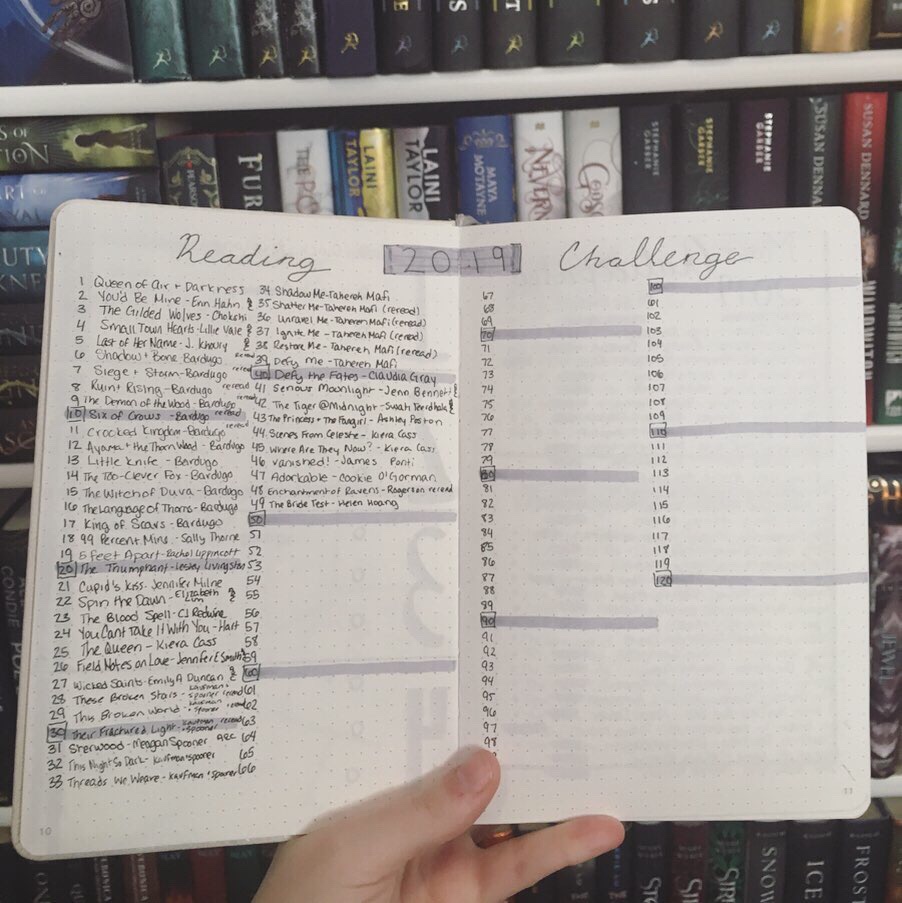 S OF
TION
ART OF
FUR
THE PO
LAINI
TAYLOR
LAINI
TAYLOR
MAYA
MOTAYNE
NEVERN
GODS
STEPHANIE
GARBER
STEPHANIE
GARBER
STEPHANIE
GARBER
SUSAN DENNA
SUSAN DENNARD
Reading 2019 Challenge
1 Queen of Air + Darkness
2 You'd Be Mine - Erin Hahn
3 The Gilded Wolves - Chokshi
4 Small Town Hearts - Lillie Vale
5 Last of Her Name - J. Khoury
6 Shadow + Bone - Bardugo reread
7 Siege + Storm - Bardugo reread
8 Ruin + Rising - Bardugo reread
9 The Demon of the Wood - Bardugo
10 Six of Crows - Bardugo reread
11 Crooked Kingdom - Bardugo reread
12 Ayama + the Thorn Wood - Bardugo
13 Little Knife - Bardugo
14 The Too-Clever Fox - Bardugo
15 The Witch of Duva - Bardugo
16 The Language of Thorns - Bardugo
17 King of Scars - Bardugo
18 99 Percent Mine - Sally Thorne
19 5 Feet Apart - Rachel Lippincott
20 The Triumphant - Lesley Livingston
21 Cupid's Kiss - Jennifer Milne
22 Spin the Dawn - Elizabeth Lim
23 The Blood Spell - CJ Redwine
24 You Cant Take It With You - Hart
25 The Queen - Kiera Cass
26 Field Notes on Love - Jennifer E Smith
27 Wicked Saints - Emily A Duncan
28 These Broken Stars - Kaufman + Spooner reread
29 This Broken World - Kaufman + Spooner
30 Their Fractured Light - Kaufman + Spooner reread
31 Sherwood - Meagan Spooner ARC
32 This Night So Dark - Kaufman + Spooner
33 Threads We Weave - Kaufman + Spooner
34 Shadow Me - Tahereh Mafi
35 Shatter Me - Tahereh Mafi (reread)
36 Unravel Me - Tahereh Mafi (reread)
37 Ignite Me - Tahereh Mafi (reread)
38 Restore Me - Tahereh Mafi (reread)
39 Defy Me - Tahereh Mafi
40 Defy the Fates - Claudia Gray
41 Serious Moonlight - Jenn Bennett
42 The Tiger @ Midnight - Swati Teerdhala
43 The Princess + the Fangirl - Ashley Poston
44 Scenes From Celeste - Kiera Cass
45 Where Are They Now? - Kiera Cass
46 Vanished! - James Ponti
47 Adorkable - Cookie O'Gorman
48 Enchantment of Ravens - Rogerson reread
49 The Bride Test - Helen Hoang
50
51
52
53
54
55
56
57
58
59
60
61
62
63
64
65
66
67
68
69
70
71
72
73
74
75
76
77
78
79
80
81
82
83
84
85
86
87
88
89
90
91
92
93
94
95
96
97
98
100
101
102
103
104
105
106
107
108
109
110
111
112
113
114
115
116
117
118
119
120
10
11
CONDIE
JEWEL
SNOW
ICE
FROST